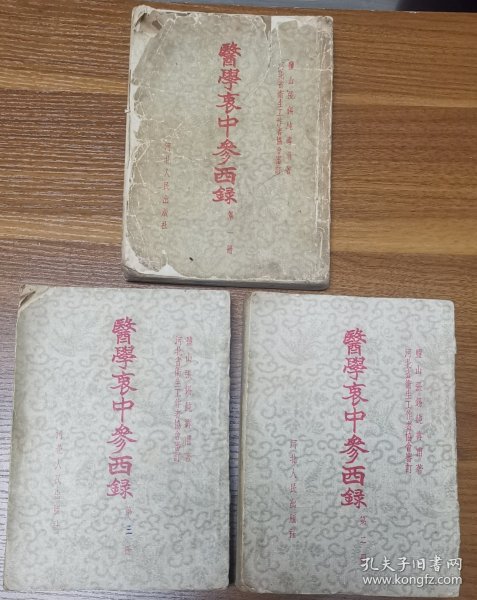 鹽山張錫純壽甫著
河北省衛生工作者協會審訂
醫學衷中參西録
第一冊
河北人民出版社
鹽山張錫純壽甫著
河北省衛生工作者協會審訂
醫學衷中參西録
第三冊
河北人民出版社
鹽山張錫純壽甫著
河北省衛生工作者協會審訂
醫學衷中參西録
第二冊
河北人民出版社
孔夫子旧书网
www.kongfz.com